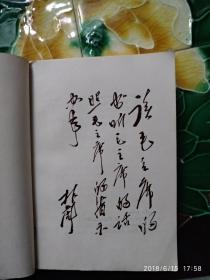 读毛主席的
书听毛主席的话
照毛主席的指示
办事
林彪
2018/6/15 17:58